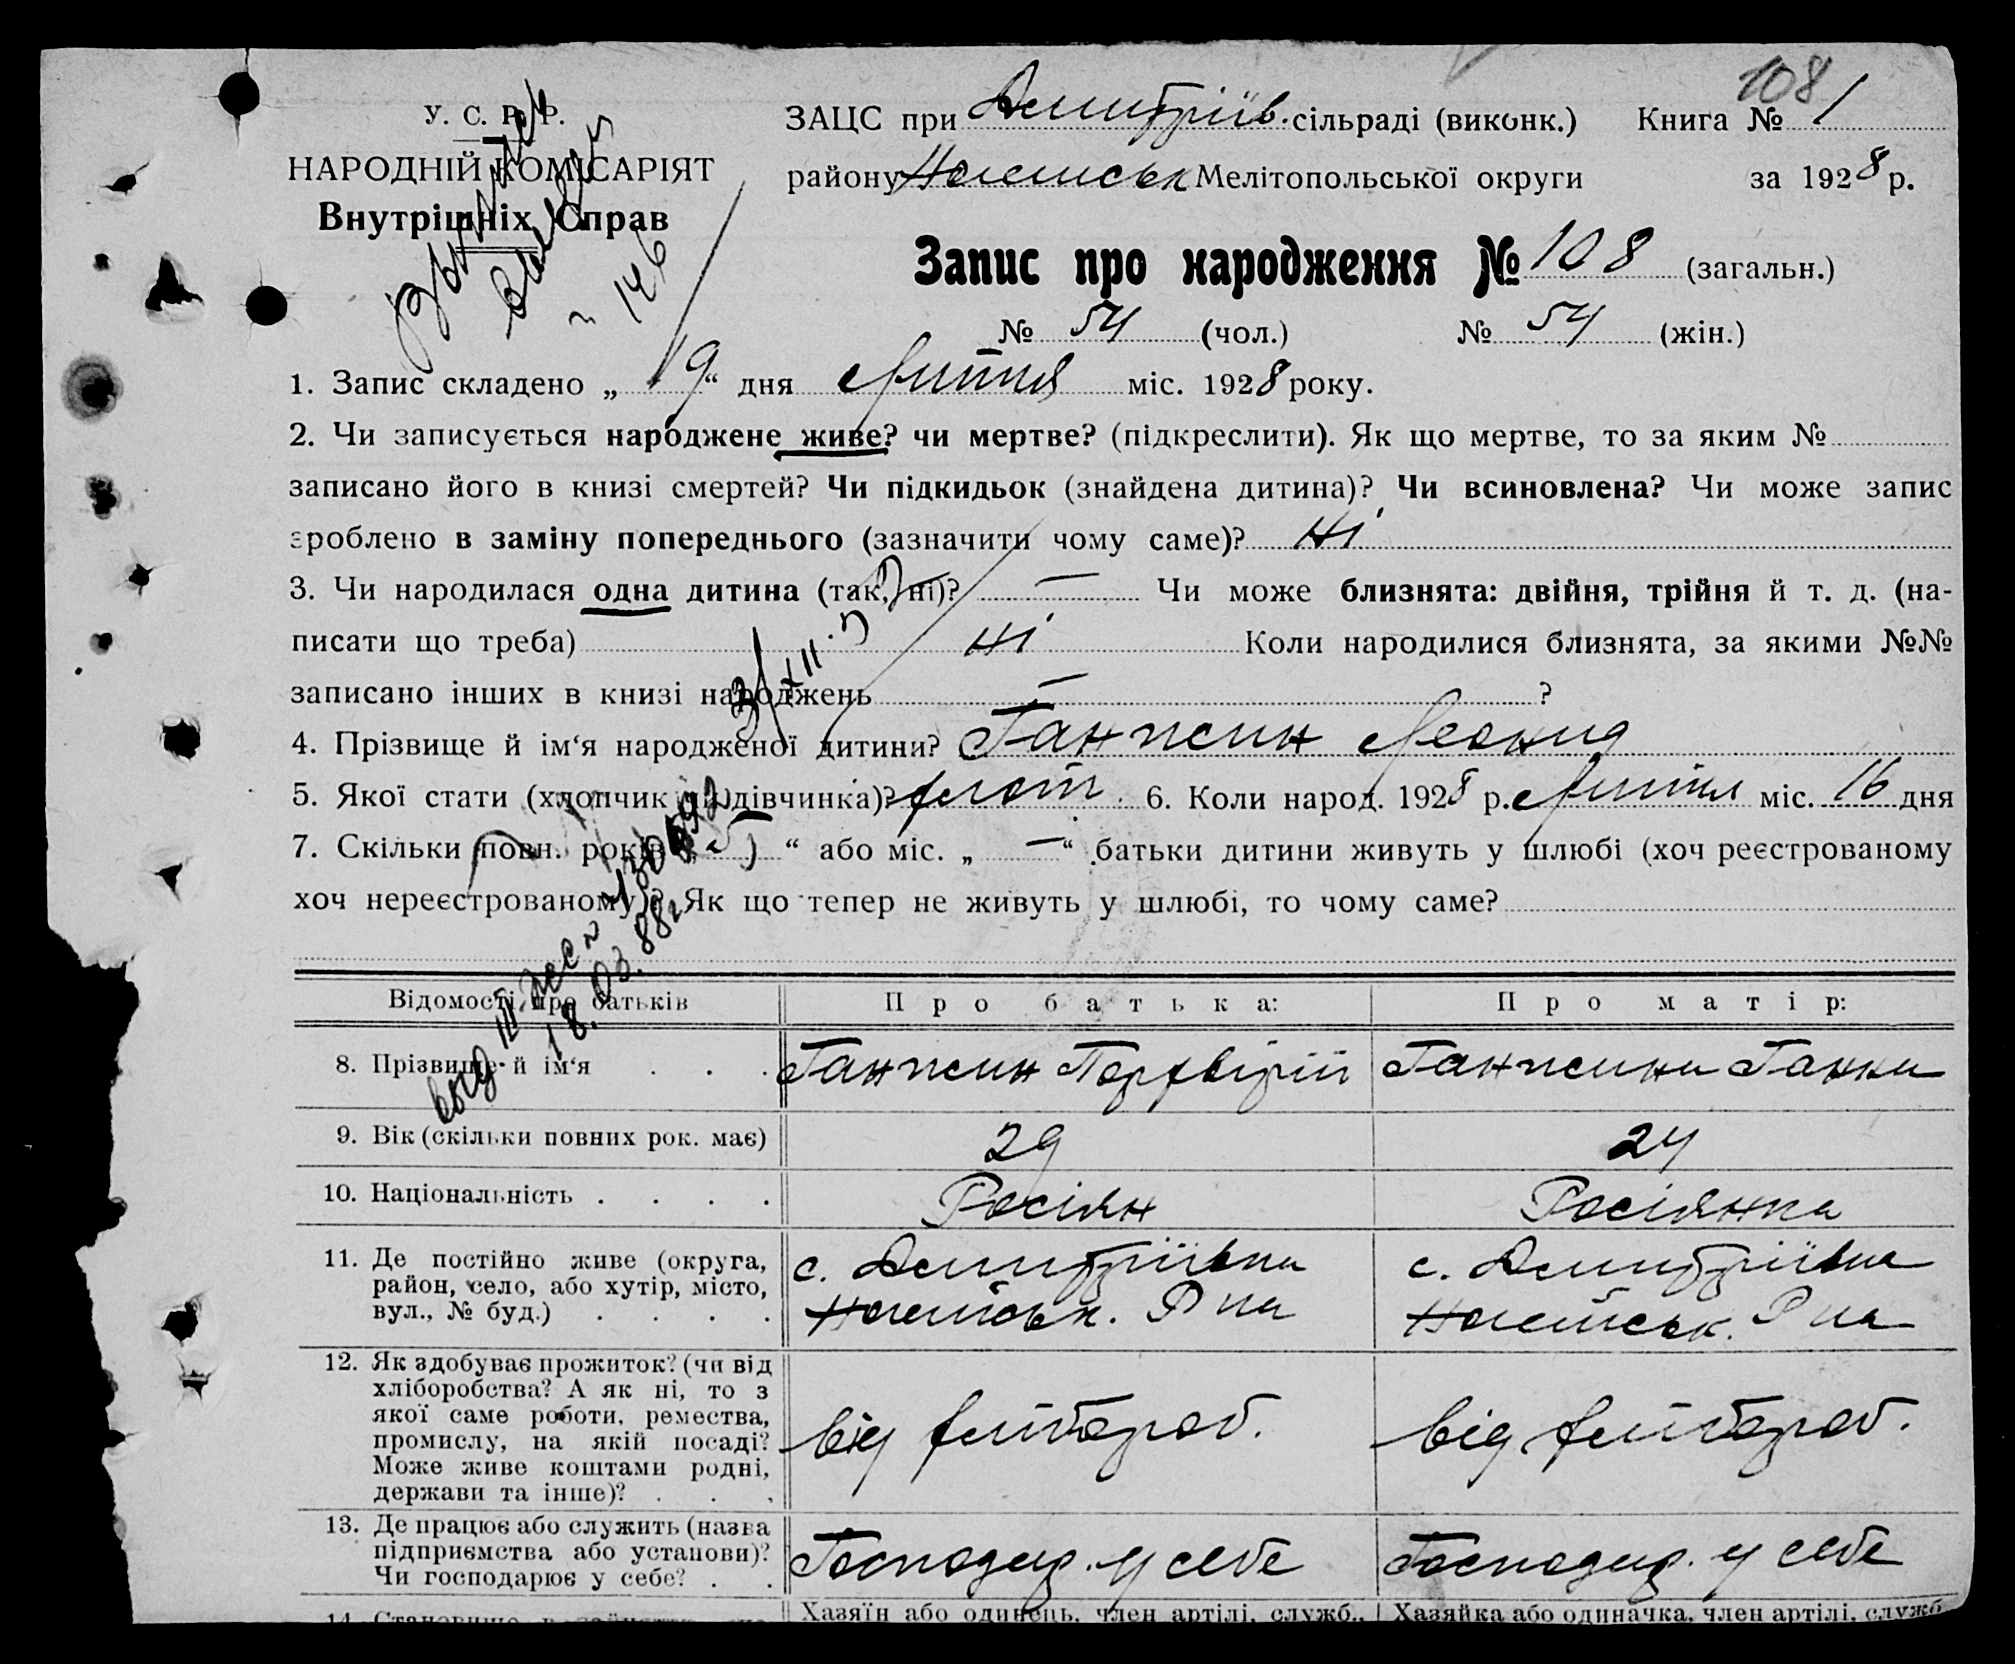 108
У. С. Р. Р.
НАРОДНІЙ КОМІСАРІЯТ
Внутрішніх Справ
ЗАЦС при Дмитріїв. сільраді (виконк.) Книга № 1
району Мелітопольської округи за 1928 р.
Запис про народження № 108 (загальн.)
№ 54 (чол.) № 54 (жін.)
146
1. Запис складено „ 19 “ дня Липня міс. 1928 року.
2. Чи записується народжене живе? чи мертве? (підкреслити). Як що мертве, то за яким №
записано його в книзі смертей? Чи підкидьок (знайдена дитина)? Чи всиновлена? Чи може запис
зроблено в заміну попереднього (зазначити чому саме)? Ні
3. Чи народилася одна дитина (так, ні)? — Чи може близнята: двійня, трійня й т. д. (на-
писати що треба) ні Коли народилися близнята, за якими №№
записано інших в книзі народжень — ?
4. Прізвище й ім‘я народженої дитини? Ганжин Леонид
5. Якої стати (хлопчик чи дівчинка)? хлоп. 6. Коли народ. 1928 р. Липня міс. 16 дня
7. Скільки повн. років „ 5 “ або міс. „ — “ батьки дитини живуть у шлюбі (хоч реєстрованому
хоч нереєстрованому)? Як що тепер не живуть у шлюбі, то чому саме?
18.03.88г
Відомості про батьків Про батька: Про матір:
8. Прізвище й ім‘я . . . Ганжин Порфвірій Ганжина Ганна
9. Вік (скільки повних рок. має) 29 24
10. Національність . . . . Росіян Росіянка
11. Де постійно живе (округа,
район, село, або хутір, місто,
вул., № буд.) . . . .
с. Дмитріївка
Р на
с. Дмитріївка
Р на
12. Як здобуває прожиток? (чи від
хліборобства? А як ні, то з
якої саме роботи, ремества,
промислу, на якій посаді?
Може живе коштами родні,
держави та інше)? . . .
від хлібороб.
від хлібороб.
13. Де працює або служить (назва
підприємства або установи)?
Чи господарює у себе? . .
Господар. у себе
Господар. у себе
14. Становище в
Хазяїн або одинець, член артілі, служб.,
Хазяйка або одиначка, член артілі, служб